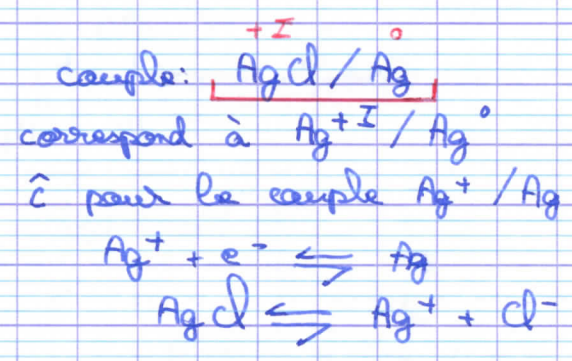 +I 0
couple: AgCl / Ag
correspond à Ag+I / Ag°
ĉ pour le couple Ag+ / Ag
Ag+ + e- ⇌ Ag
AgCl ⇌ Ag+ + Cl-